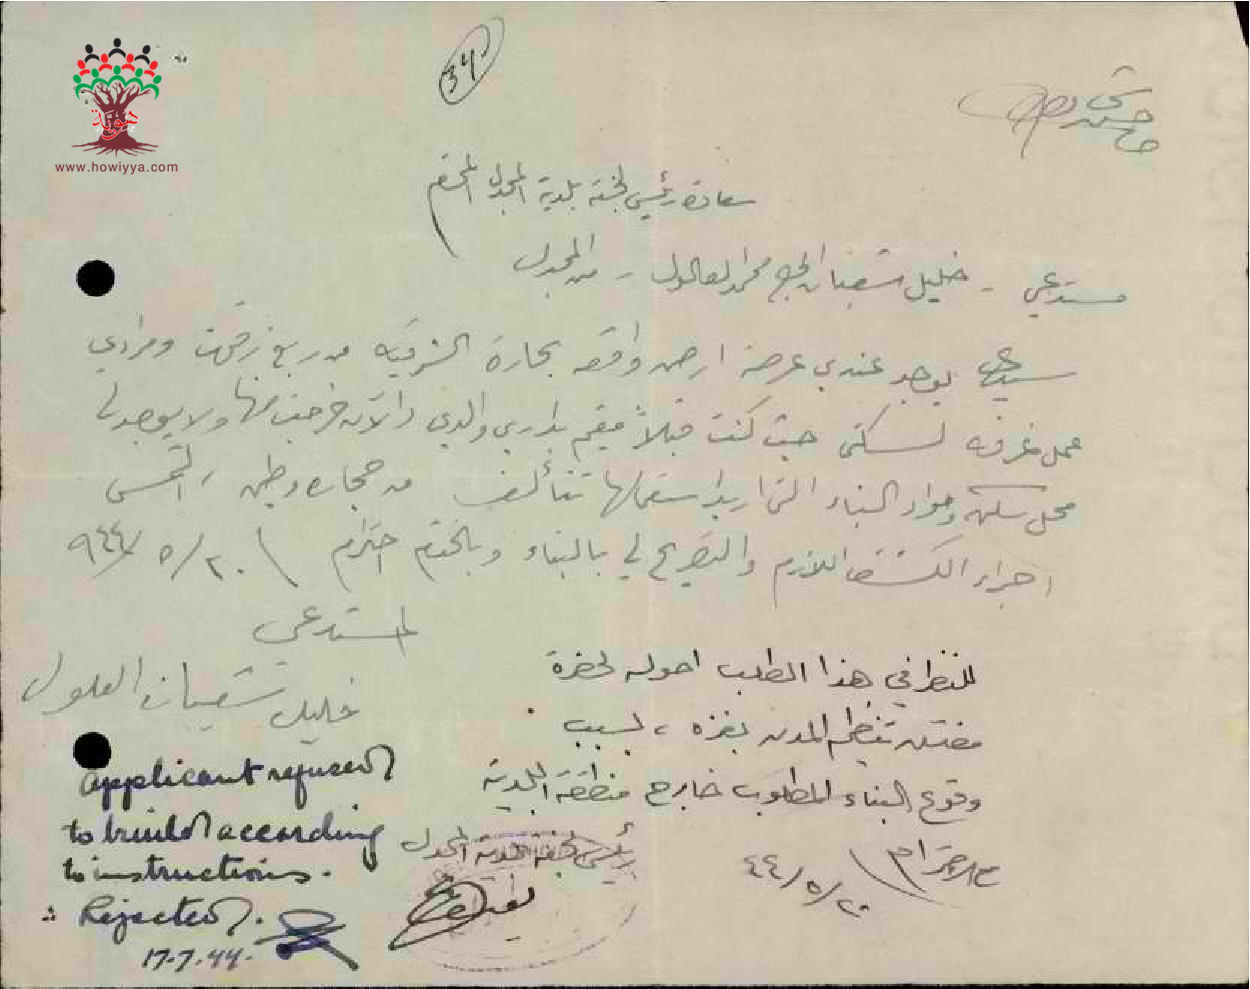 هوية
www.howiyya.com
34
سعادة رئيس لجنة بلدية المجدل المحترم
مستدعي - خليل شعبان الحج محمد العالول - من المجدل
سيدي يوجد عندي عرصة ارض واقعه بحارة الشرقيه من ربع زقوت ومرادي
عمل غرفه لسكني حيث كنت قبلاً مقيم بدار والدي والآن خرجت منها ولا يوجد لي
محل سكن ومواد البناء التي اريد استعمالها تتألف من حجاره وطين ، التمس
اجراء الكشف اللازم والتصريح لي بالبناء وبالختم احترام ٢٠/٥/٩٤٤
المستدعي
خليل شعبان العلول
للنظر في هذا الطلب احوله لحضرة
مفتش تنظيم المدن بغزه ، بسبب
وقوع البناء المطلوب خارج منطقة البلدية
مع الاحترام ٢٠/٥/٤٤
رئيس لجنة بلدية المجدل
applicant refused
to build according
to instructions.
∴ Rejected.
17-7-44.